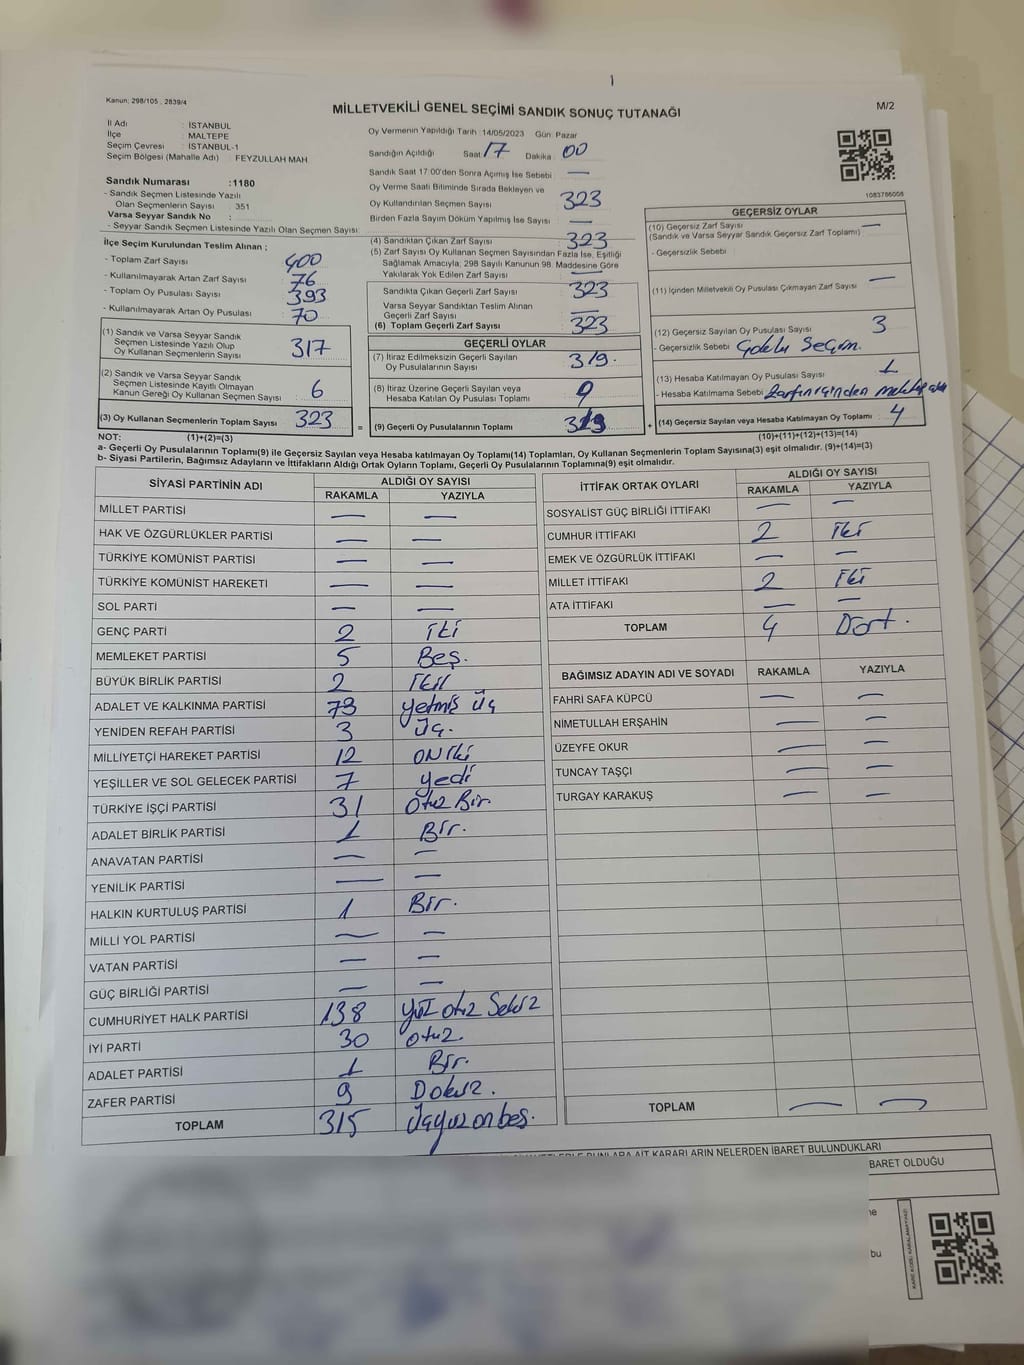 Kanun: 298/105 , 2839/4
MİLLETVEKİLİ GENEL SEÇİMİ SANDIK SONUÇ TUTANAĞI
M/2
İl Adı : İSTANBUL
İlçe : MALTEPE
Seçim Çevresi : İSTANBUL-1
Seçim Bölgesi (Mahalle Adı) : FEYZULLAH MAH.
Oy Vermenin Yapıldığı Tarih :14/05/2023 Gün: Pazar
Sandığın Açıldığı Saat 17 Dakika : 00
Sandık Saat 17:00'den Sonra Açımış İse Sebebi : —
Oy Verme Saati Bitiminde Sırada Bekleyen ve
Oy Kullandırılan Seçmen Sayısı : 323
Birden Fazla Sayım Döküm Yapılmış İse Sayısı : —
1083786008
Sandık Numarası :1180
- Sandık Seçmen Listesinde Yazılı
Olan Seçmenlerin Sayısı : 351
Varsa Seyyar Sandık No :
- Seyyar Sandık Seçmen Listesinde Yazılı Olan Seçmen Sayısı:
İlçe Seçim Kurulundan Teslim Alınan ;
- Toplam Zarf Sayısı : 400
- Kullanılmayarak Artan Zarf Sayısı : 76
- Toplam Oy Pusulası Sayısı : 393
- Kullanılmayarak Artan Oy Pusulası : 70
(1) Sandık ve Varsa Seyyar Sandık
Seçmen Listesinde Yazılı Olup
Oy Kullanan Seçmenlerin Sayısı : 317
(2) Sandık ve Varsa Seyyar Sandık
Seçmen Listesinde Kayıtlı Olmayan
Kanun Gereği Oy Kullanan Seçmen Sayısı : 6
(3) Oy Kullanan Seçmenlerin Toplam Sayısı : 323
(4) Sandıktan Çıkan Zarf Sayısı : 323
(5) Zarf Sayısı Oy Kullanan Seçmen Sayısından Fazla İse, Eşitliği
Sağlamak Amacıyla; 298 Sayılı Kanunun 98. Maddesine Göre
Yakılarak Yok Edilen Zarf Sayısı : —
Sandıkta Çıkan Geçerli Zarf Sayısı : 323
Varsa Seyyar Sandıktan Teslim Alınan
Geçerli Zarf Sayısı : —
(6) Toplam Geçerli Zarf Sayısı : 323
GEÇERLİ OYLAR
(7) İtiraz Edilmeksizin Geçerli Sayılan
Oy Pusulalarının Sayısı : 319.
(8) İtiraz Üzerine Geçerli Sayılan veya
Hesaba Katılan Oy Pusulası Toplamı :
= (9) Geçerli Oy Pusulalarının Toplamı : 319
GEÇERSİZ OYLAR
(10) Geçersiz Zarf Sayısı : —
(Sandık ve Varsa Seyyar Sandık Geçersiz Zarf Toplamı)
- Geçersizlik Sebebi :
(11) İçinden Milletvekili Oy Pusulası Çıkmayan Zarf Sayısı : —
(12) Geçersiz Sayılan Oy Pusulası Sayısı : 3
- Geçersizlik Sebebi : Çoklu Seçim.
(13) Hesaba Katılmayan Oy Pusulası Sayısı : 1
- Hesaba Katılmama Sebebi : Zarfın içinden
+ (14) Geçersiz Sayılan veya Hesaba Katılmayan Oy Toplamı : 4
NOT: (1)+(2)=(3) (10)+(11)+(12)+(13)=(14)
a- Geçerli Oy Pusulalarının Toplamı(9) ile Geçersiz Sayılan veya Hesaba katılmayan Oy Toplamı(14) Toplamları, Oy Kullanan Seçmenlerin Toplam Sayısına(3) eşit olmalıdır. (9)+(14)=(3)
b- Siyasi Partilerin, Bağımsız Adayların ve İttifakların Aldığı Ortak Oyların Toplamı, Geçerli Oy Pusulalarının Toplamına(9) eşit olmalıdır.
SİYASİ PARTİNİN ADI ALDIĞI OY SAYISI
RAKAMLA YAZIYLA
MİLLET PARTİSİ — —
HAK VE ÖZGÜRLÜKLER PARTİSİ — —
TÜRKİYE KOMÜNİST PARTİSİ — —
TÜRKİYE KOMÜNİST HAREKETİ — —
SOL PARTİ — —
GENÇ PARTİ 2 iki
MEMLEKET PARTİSİ 5 Beş.
BÜYÜK BİRLİK PARTİSİ 2 İki
ADALET VE KALKINMA PARTİSİ 73 yetmiş üç
YENİDEN REFAH PARTİSİ 3 üç.
MİLLİYETÇİ HAREKET PARTİSİ 12 on iki
YEŞİLLER VE SOL GELECEK PARTİSİ 7 yedi
TÜRKİYE İŞÇİ PARTİSİ 31 Otuz Bir.
ADALET BİRLİK PARTİSİ 1 Bir.
ANAVATAN PARTİSİ — —
YENİLİK PARTİSİ — —
HALKIN KURTULUŞ PARTİSİ 1 Bir.
MİLLİ YOL PARTİSİ — —
VATAN PARTİSİ — —
GÜÇ BİRLİĞİ PARTİSİ — —
CUMHURİYET HALK PARTİSİ 138 yüz otuz Sekiz
İYİ PARTİ 30 otuz.
ADALET PARTİSİ 1 Bir.
ZAFER PARTİSİ 9 Dokuz.
TOPLAM 315 Üçyüz onbeş.
İTTİFAK ORTAK OYLARI ALDIĞI OY SAYISI
RAKAMLA YAZIYLA
SOSYALİST GÜÇ BİRLİĞİ İTTİFAKI — —
CUMHUR İTTİFAKI 2 İki
EMEK VE ÖZGÜRLÜK İTTİFAKI — —
MİLLET İTTİFAKI 2 İki
ATA İTTİFAKI — —
TOPLAM 4 Dört.
BAĞIMSIZ ADAYIN ADI VE SOYADI RAKAMLA YAZIYLA
FAHRİ SAFA KÜPCÜ — —
NİMETULLAH ERŞAHİN — —
ÜZEYFE OKUR — —
TUNCAY TAŞÇI — —
TURGAY KARAKUŞ — —
TOPLAM — —
BUNLARA AİT KARARLARIN NELERDEN İBARET BULUNDUKLARI
BARET OLDUĞU
ne
bu
KARE KODU KARALAMAYINIZ!